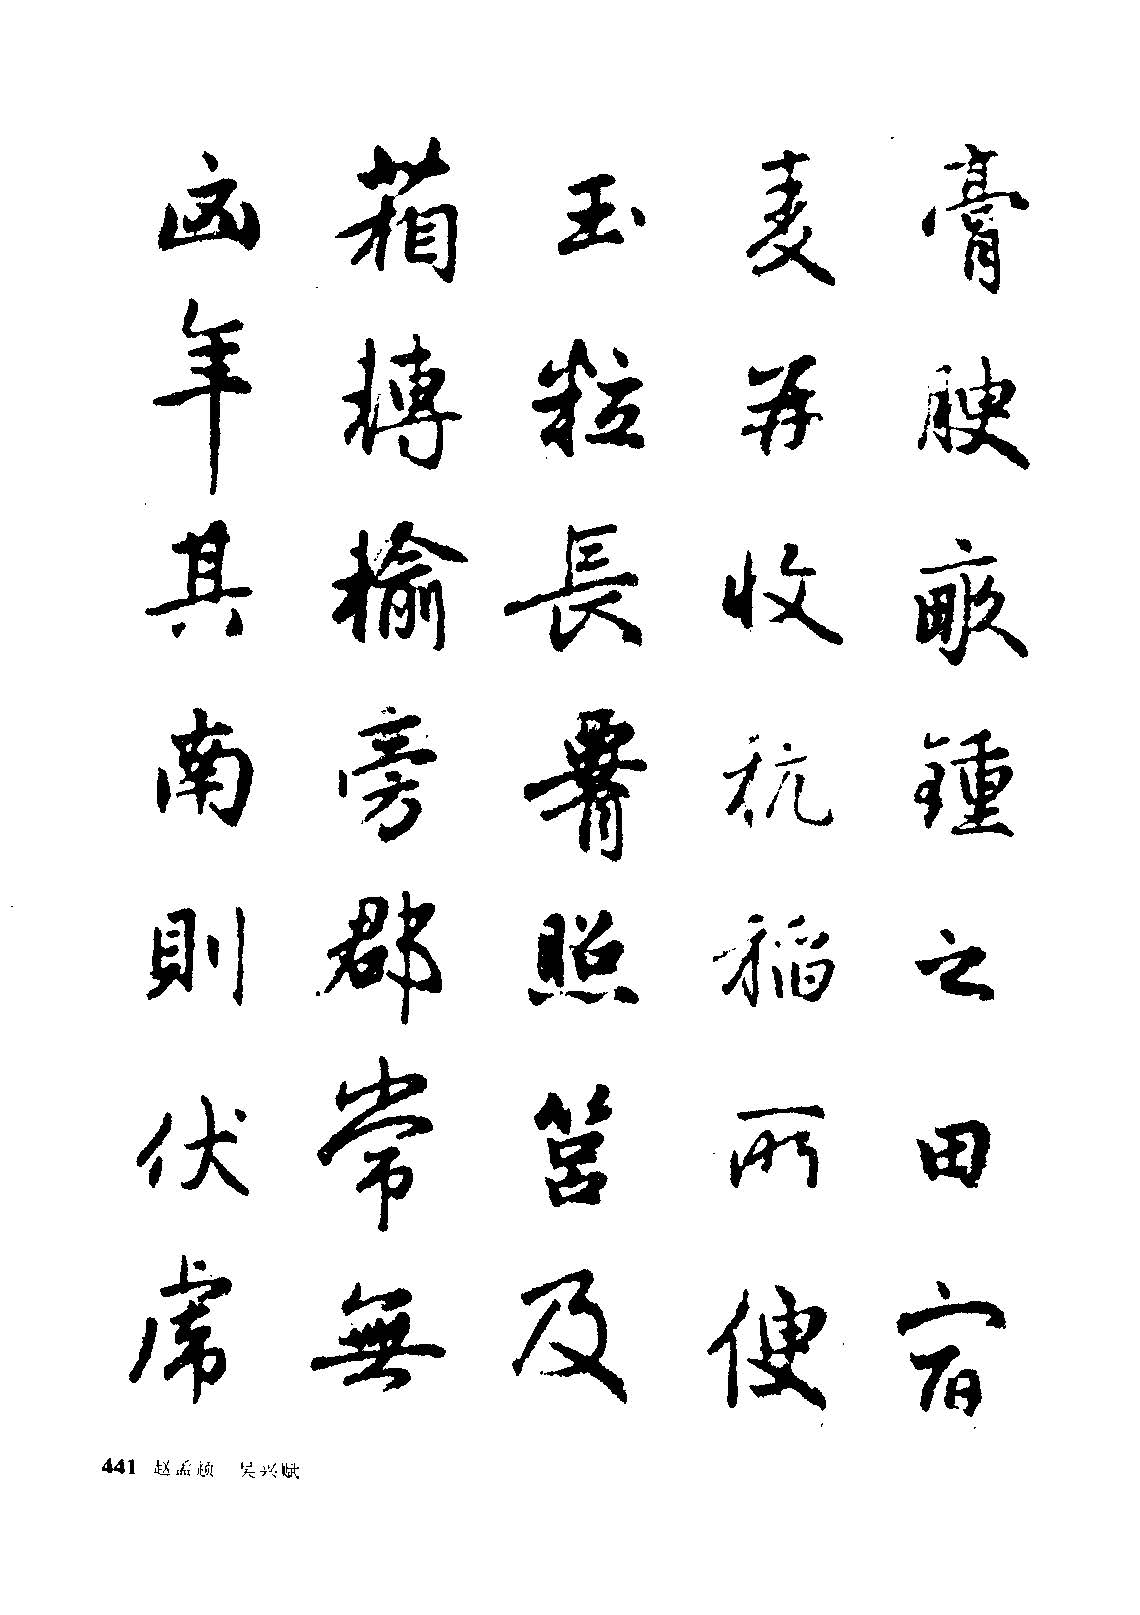 膏腴畝鍾之田宿
麦再收秔稻所便
玉粒長腰照筥及
箱轉輸旁郡常無
㐫年其南則伏虎
441 赵孟頫 吴兴赋